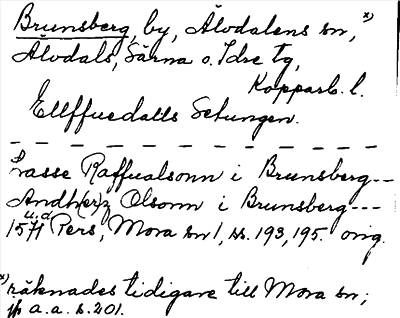 Brunsberg, by, Älvdalens sn, x)
Älvdals, Särna o. Idre tg,
Kopparb. l.
Ellffuedalls Setungen.
Lasse Raffualsonn i Brunsberg--
Andh(er)z Olsonn i Brunsberg---
1571 u.a Pers, Mora sn/, ss. 193, 195. orig.
x) räknades tidigare till Mora sn;
jfr a.a. s. 201.